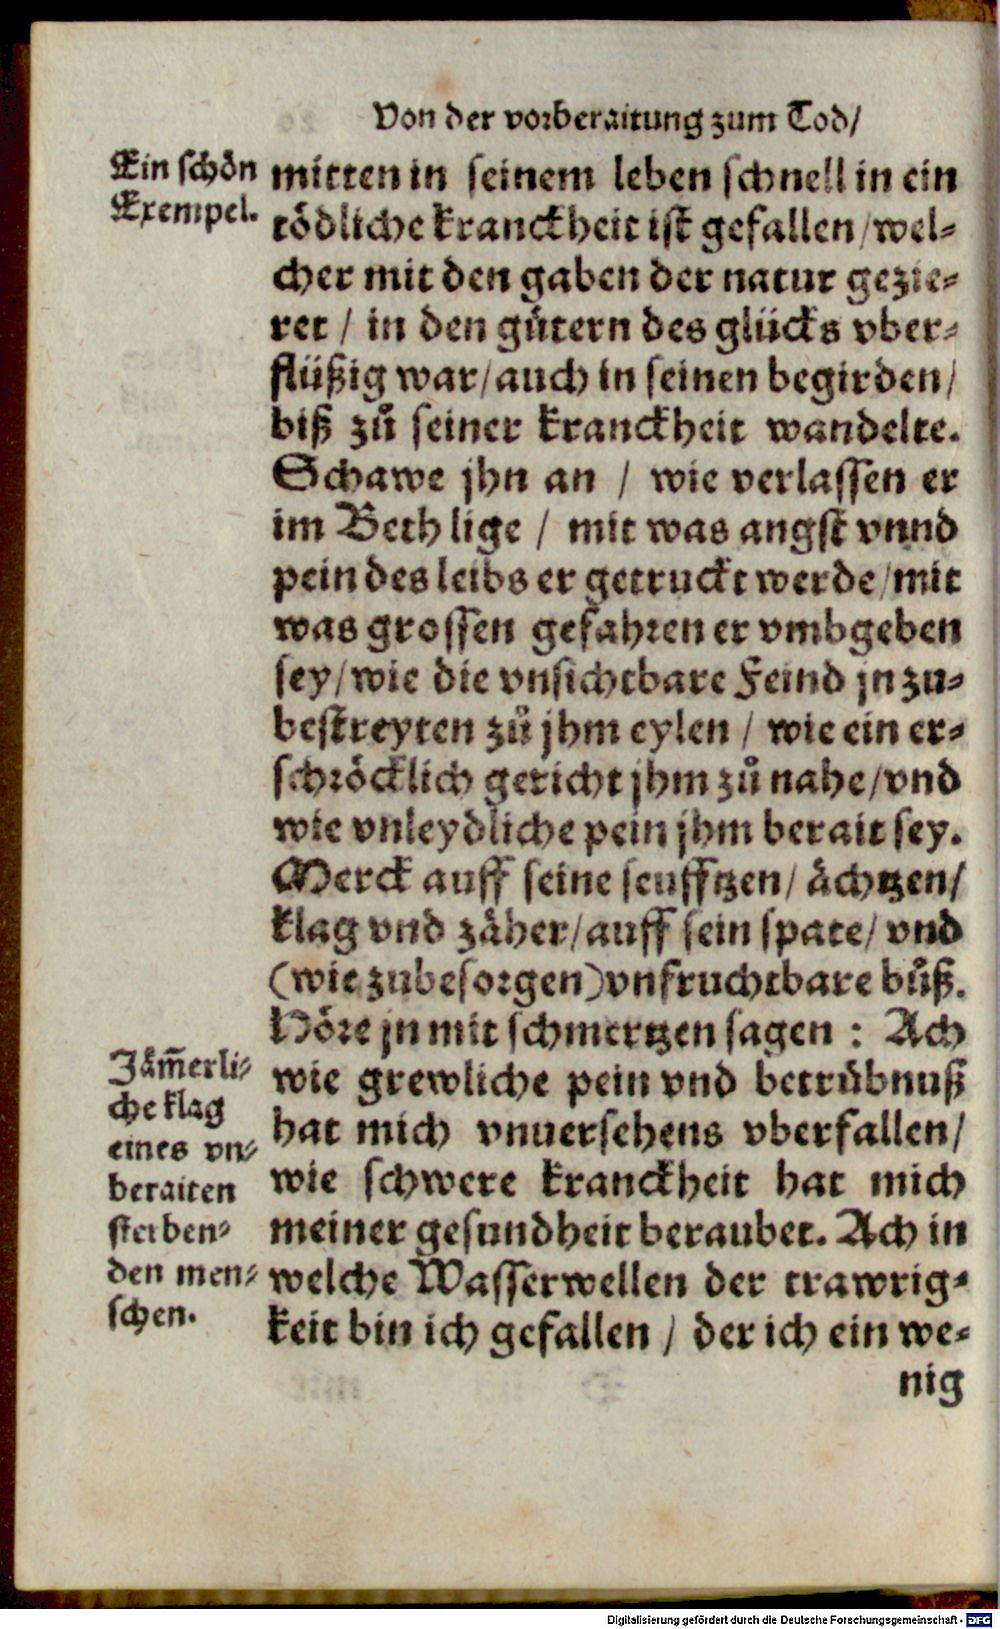 Von der vorberaitung zum Tod/
Ein schön
Exempel.
mitten in seinem leben schnell in ein
tödliche kranckheit ist gefallen/wel-
cher mit den gaben der natur gezie-
ret / in den gütern des glücks vber-
flüßig war/auch in seinen begirden/
biß zů seiner kranckheit wandelte.
Schawe jhn an / wie verlassen er
im Beth lige / mit was angst vnnd
pein des leibs er getruckt werde/mit
was grossen gefahren er vmbgeben
sey/wie die vnsichtbare Feind jn zu-
bestreyten zů jhm eylen / wie ein er-
schröcklich gericht jhm zů nahe/vnd
wie vnleydliche pein jhm berait sey.
Merck auff seine seufftzen/ ächtzen/
klag vnd zäher/auff sein spate/ vnd
(wie zubesorgen)vnfruchtbare bůß.
Höre jn mit schmertzen sagen : Ach
Jäm̃erli-
che klag
eines vn-
beraiten
sterben-
den men-
schen.
wie grewliche pein vnd betrübnuß
hat mich vnuersehens vberfallen/
wie schwere kranckheit hat mich
meiner gesundheit beraubet. Ach in
welche Wasserwellen der trawrig-
keit bin ich gefallen / der ich ein we-
nig
Digitalisierung gefördert durch die Deutsche Forschungsgemeinschaft - DFG